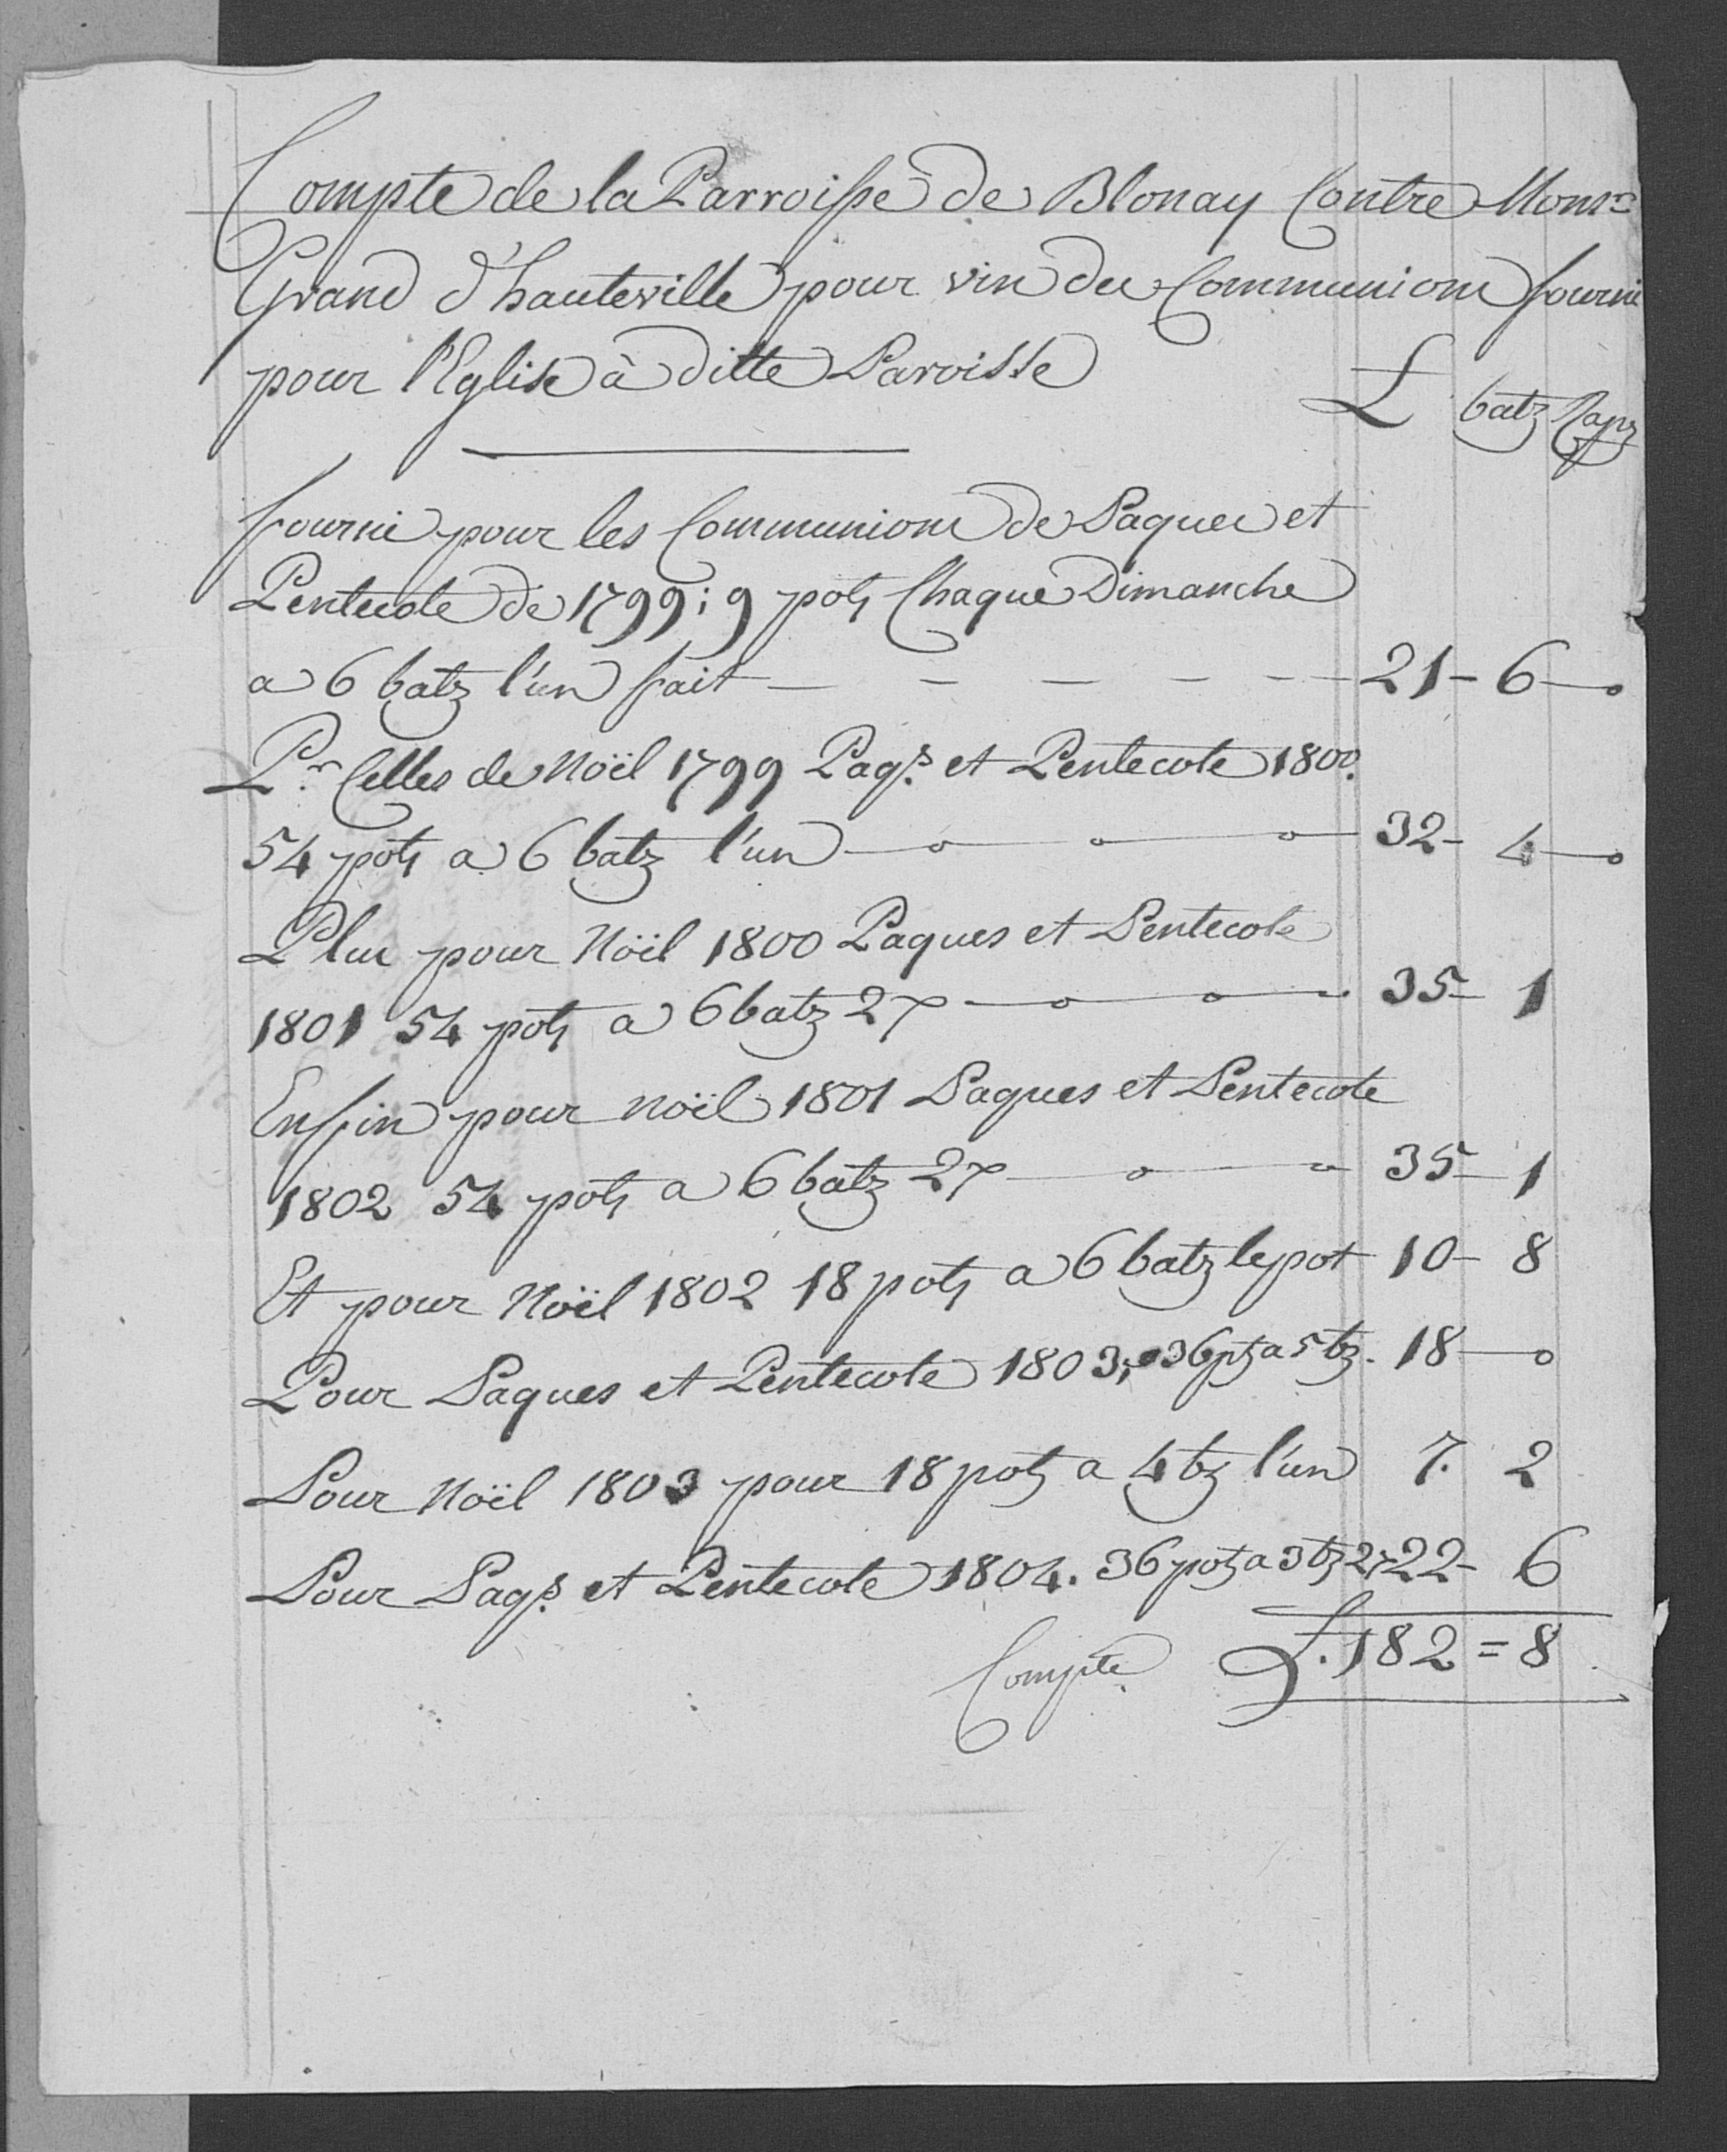 Compte de la Parroisse de Blonay Contre Monsr
Grand d'hauteville pour vin du Communions fourni
pour l'Eglise à ditte Paroisse
L batz Rapz
fourni pour les Communions de Paques et
Pentecote de 1799; 9 pots Chaque Dimanche
a 6 batz l'un fait — — — — — 21 - 6 —o
Pr Celles de Noël 1799 Paqs. et Pentecote 1800.
54 pots a 6 batz l'un —o—o—o— 32 - 4 —o
Plus pour Noël 1800 Paques et Pentecote
1801 54 pots a 6 batz 2 —o—o— 35 - 1
Enfin pour noël 1801 Paques et Pentecote
1802 54 pots a 6 batz 2 —o—o— 35 - 1
Et pour Noël 1802 18 pots a 6 batz le pot 10 - 8
Pour Paques et Pentecote 1803, 36 pts a 5 bz. 18 —o
Pour Noël 1803 pour 18 pots a 4 bz l'un 7. 2
Pour Paqs. et Pentecote 1804. 36 pots a 3 bz 2 22 - 6
Compte L. 182 = 8